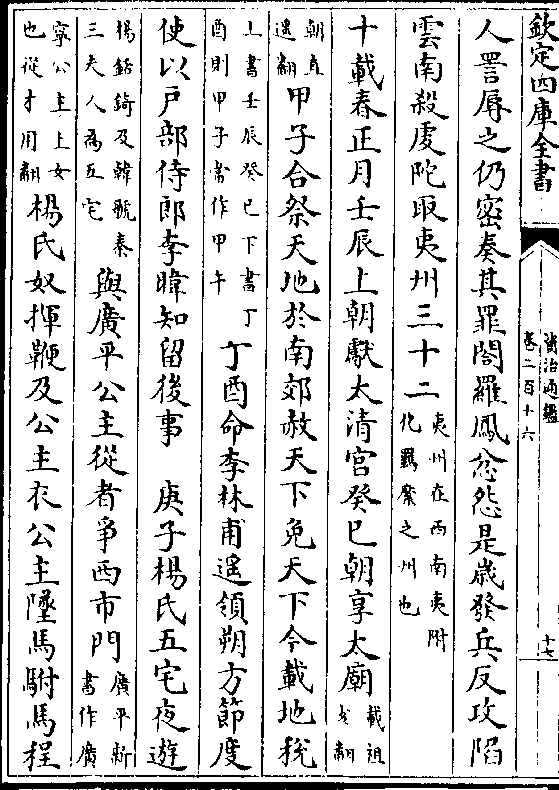 欽定四庫全書
資治通鑑
卷二百十六
十七
人詈辱之仍密奏其罪閤羅鳳忿怨是歲發兵反攻陷
雲南殺虔陀取夷州三十二夷州在西南夷附化羈縻之州也
十載春正月壬辰上朝獻太清宮癸巳朝享太廟載祖亥翻
朝直遥翻甲子合祭天地於南郊赦天下免天下今載地稅
上書壬辰癸巳下書丁酉則甲子當作甲午丁酉命李林甫遥領朔方節度
使以戶部侍郎李暐知留後事 庚子楊氏五宅夜遊
楊銛錡及韓虢秦三夫人為五宅與廣平公主從者爭西市門廣平新書作廣
寧公主上女也從才用翻楊氏奴揮鞭及公主衣公主墜馬駙馬程